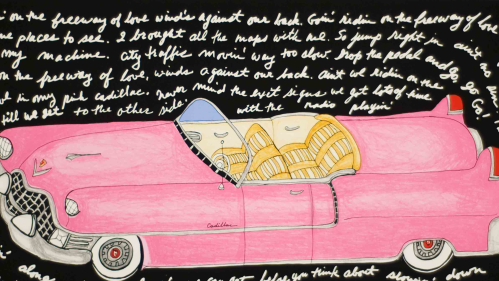 on the freeway of love wind's against our back. Goin' ridin on the freeway of love
me places to see. I brought all the maps with me. So jump right in ain't no
my machine. City traffic movin' way too slow drop the pedal and go Go Go!
on the freeway of love, winds against our back. ain't we ridin on the
in my pink cadillac. never mind the exit signs we got lots of time
till we get to the other side. with the radio playin'
Cadillac
alone you think about slowin' down